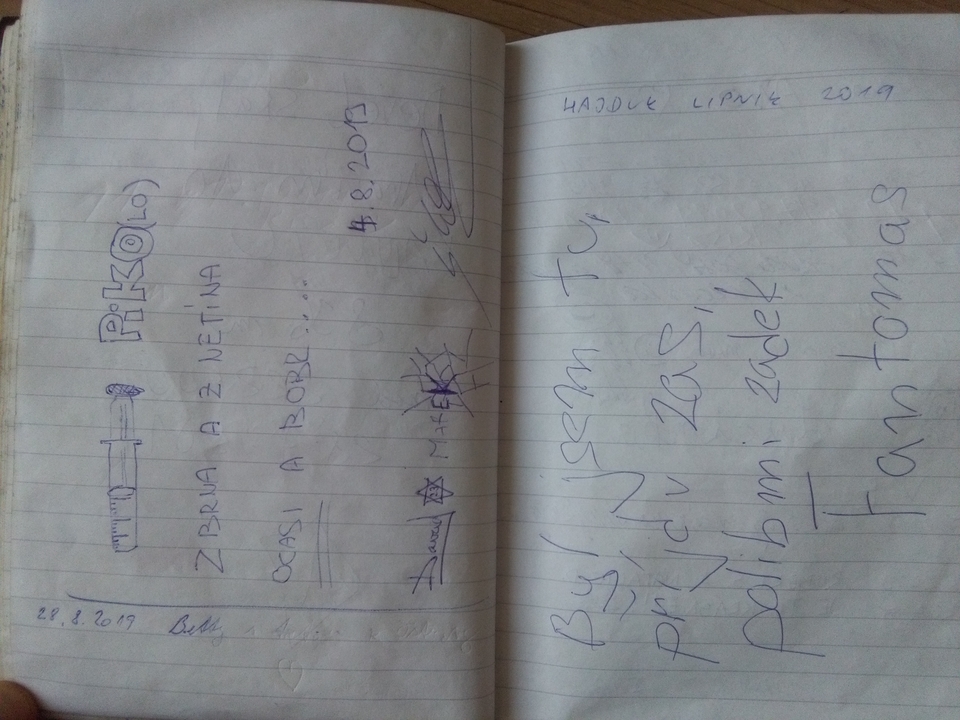 PIKO(LO)
Z BRNA A Z NETÍNA
OCASI A BOBR....
4.8.2019
David MAREK
28.8.2019 Betty
HAJDUK LIPNÍK 2019
Byl jsem tu,
přijdu zas,
polib mi zadek
Fantomas